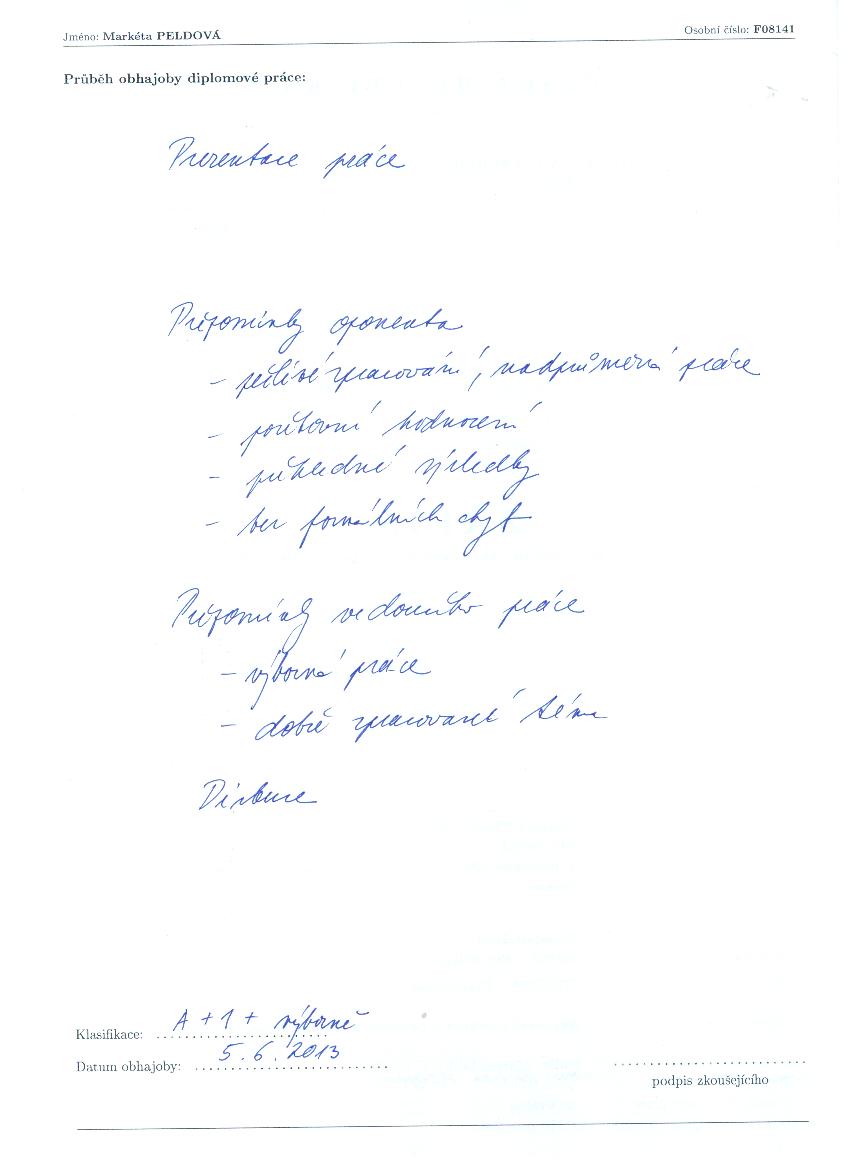 Jméno: Markéta PELDOVÁ
Osobní číslo: F08141
Průběh obhajoby diplomové práce:
Prezentace práce
Připomínky oponenta
- pečlivé zpracování, nadprůměrná práce
- pozitivní hodnocení
- přehledné výsledky
- bez formálních chyb
Připomínky vedoucího práce
- výborná práce
- dobře zpracované téma
Diskuse
Klasifikace: A + 1 + výborně
Datum obhajoby: 5.6.2013
podpis zkoušejícího